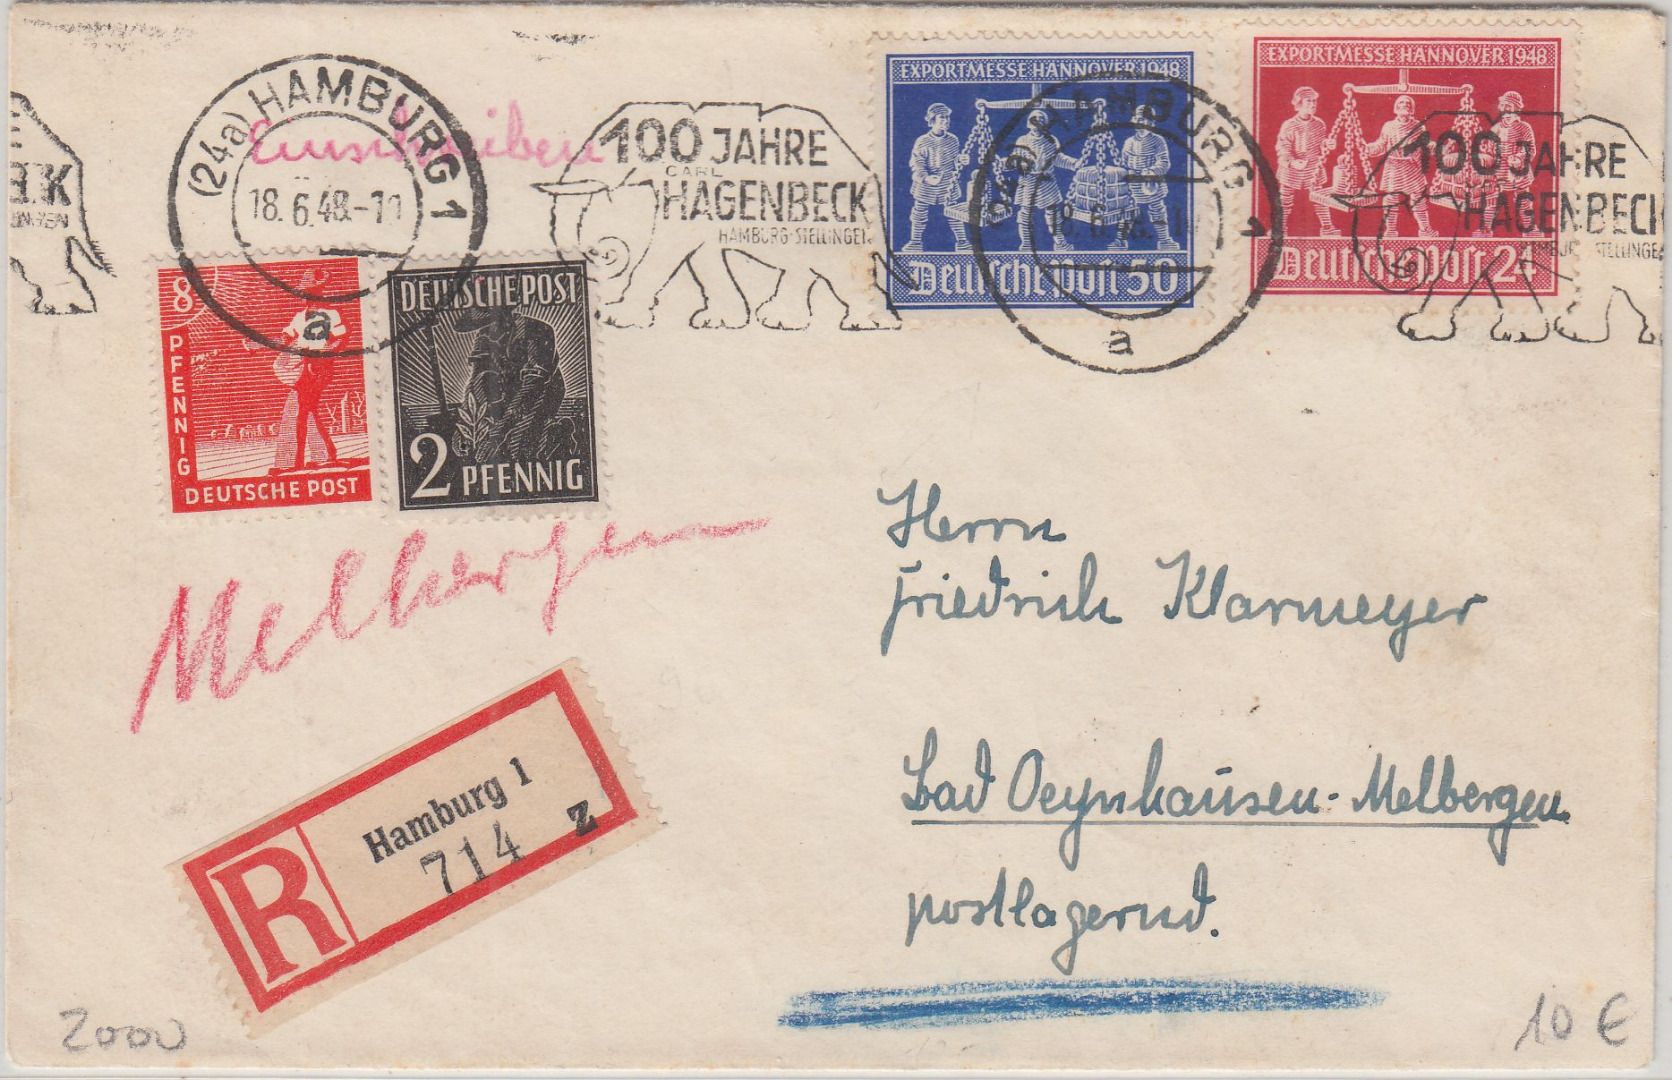 E
BECK
LINGEN
(24a) HAMBURG 1
18.6.48.-1
a
Einschreiben
100 JAHRE
CARL
HAGENBECK
HAMBURG-STELLINGEN
EXPORTMESSE HANNOVER 1948
Deutsche Post 50
(24a) HAMBURG 1
18.6.48.-1
a
EXPORTMESSE HANNOVER 1948
Deutsche Post 24
100 JAHRE
HAGENBECK
HAMBURG-STELLINGE
8
PFENNIG
DEUTSCHE POST
DEUTSCHE POST
2 PFENNIG
Melbergen
Herrn
Friedrich Klarmeyer
Bad Oeynhausen-Melbergen
postlagernd.
R
Hamburg 1
714 z
2000
10 €